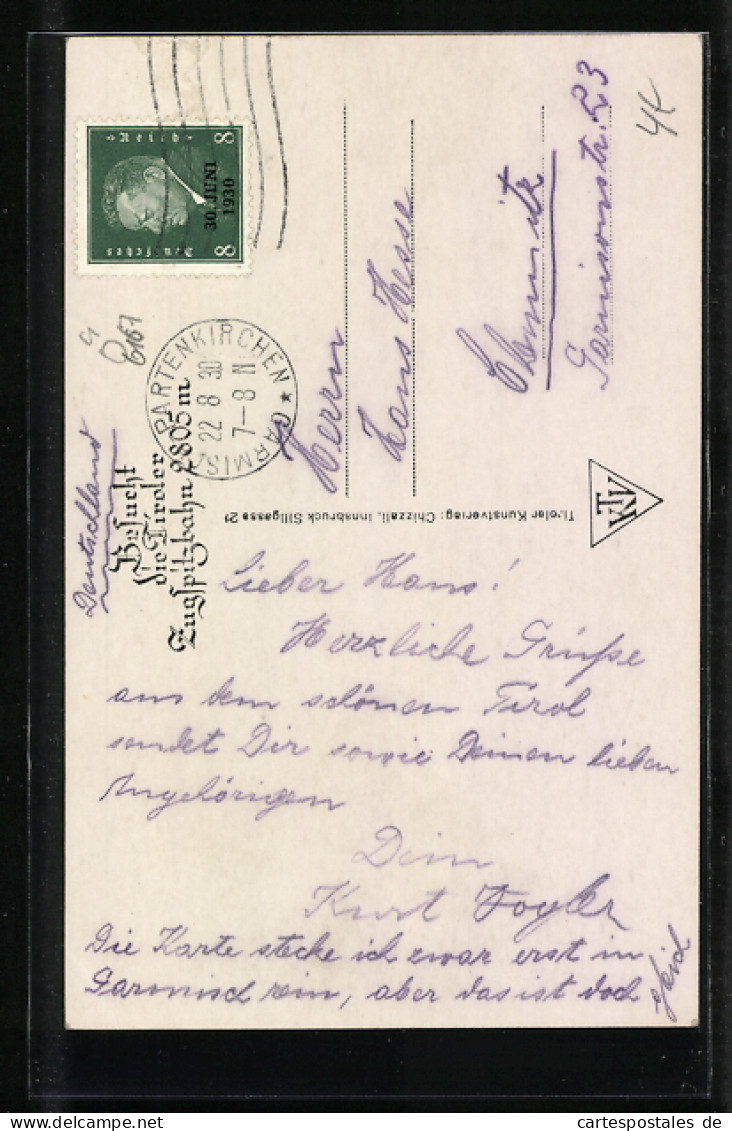 Deutsches Reich
8 8
30. JUNI
1930
GARMISCH-PARTENKIRCHEN *
22 8 30
7-8 N
Besucht
die Tiroler
Zugspitzbahn 2805 m
Deutschland
Herrn
Hans Hesse
Chemnitz
Garnisonstr. 23
Tiroler Kunstverlag: Chizzali, Innsbruck Sillgasse 21
KTV
Lieber Hans!
Herzliche Grüße
aus dem schönen Tirol
sendet Dir sowie Deinen lieben
Angehörigen
Dein
Kurt Vogler
Die Karte stecke ich zwar erst in
Garmisch rein, aber das ist doch
gleich
cartespostales.de